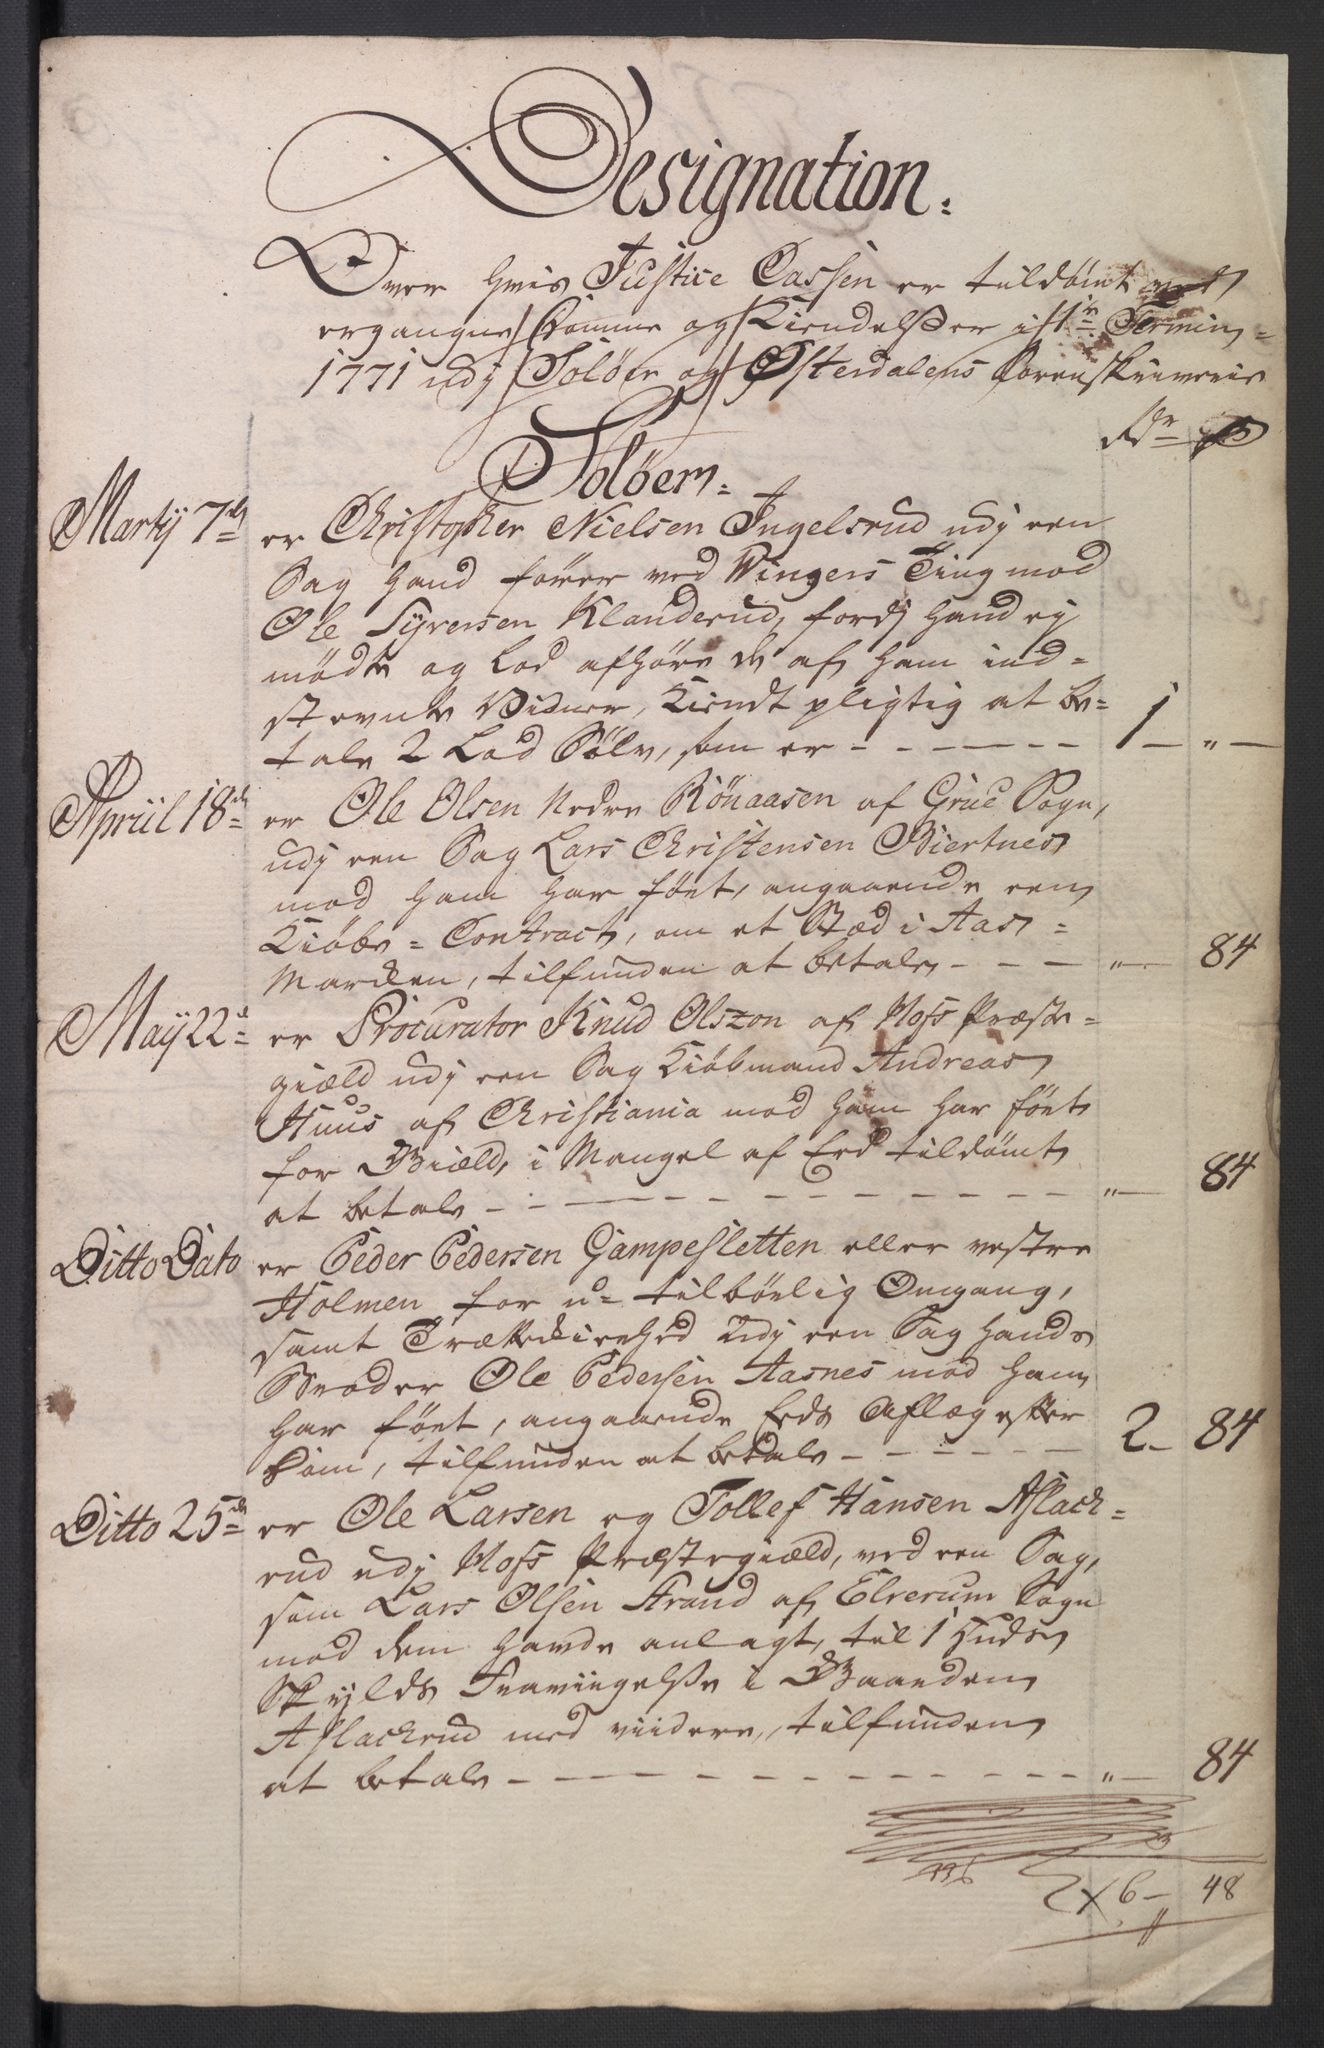 Designation.
Over hvis Justice Cassen er tildømt ved
ergangne Domme og Kiendelser i 1te Termin
1771 udj Soløer og Østerdalens Sorenskriverie
Rdr ß
Soløer.
Martij 7de er Christopher Nielsen Ingelsrud udj een
Sag hand fører ved Wingers Ting mod
Ole Syversen Klanderud, fordj hand ej
mødte og lod afhøre de af ham ind=
stevnte Vidner, kiendt pligtig at be=
tale 2 Lod Sølv, som er - - - - - - 1 - " -
Apriil 18de er Ole Olsen Nedre Rönaasen af Grue Sogn,
udj een Sag Lars Christensen Biertnes
mod ham harført, angaaende een
Kiøbe=Contract, om et Stæd i Aas=
Marcken, tilfunden at betale - - - " - 84
May 22de er Procurator Knud Olszon af Hofs Præste=
giæld udj een Sag Kiøbmand Andreas
Huus af Christiania mod ham har ført
for Giæld, i Mangel af Eed tildømt
at betale - - - - - - - - - - " - 84
Ditto Dato er Peder Pedersen Gampesletten eller vestre
Holmen for u=tilbørlig Omgang,
samt Trættekierhed udj een Sag hands
Broder Ole Pedersen Aasnes mod ham
har ført, angaaende Eeds Aflæg efter
Dom, tilfunden at betale - - - - - - 2 - 84
Ditto 25de er Ole Larsen og Tollef Hansen Aslach=
rud udj Hofs Præstegiæld, ved een Sag,
som Lars Olsen Strand af Elverum Sogn
mod dem havde anlagt, til 1 Huds
Skylds Fravigelse i Gaarden
Aslachrud med viidere, tilfunden
at betale - - - - - - - - - - " - 84
6 - 48